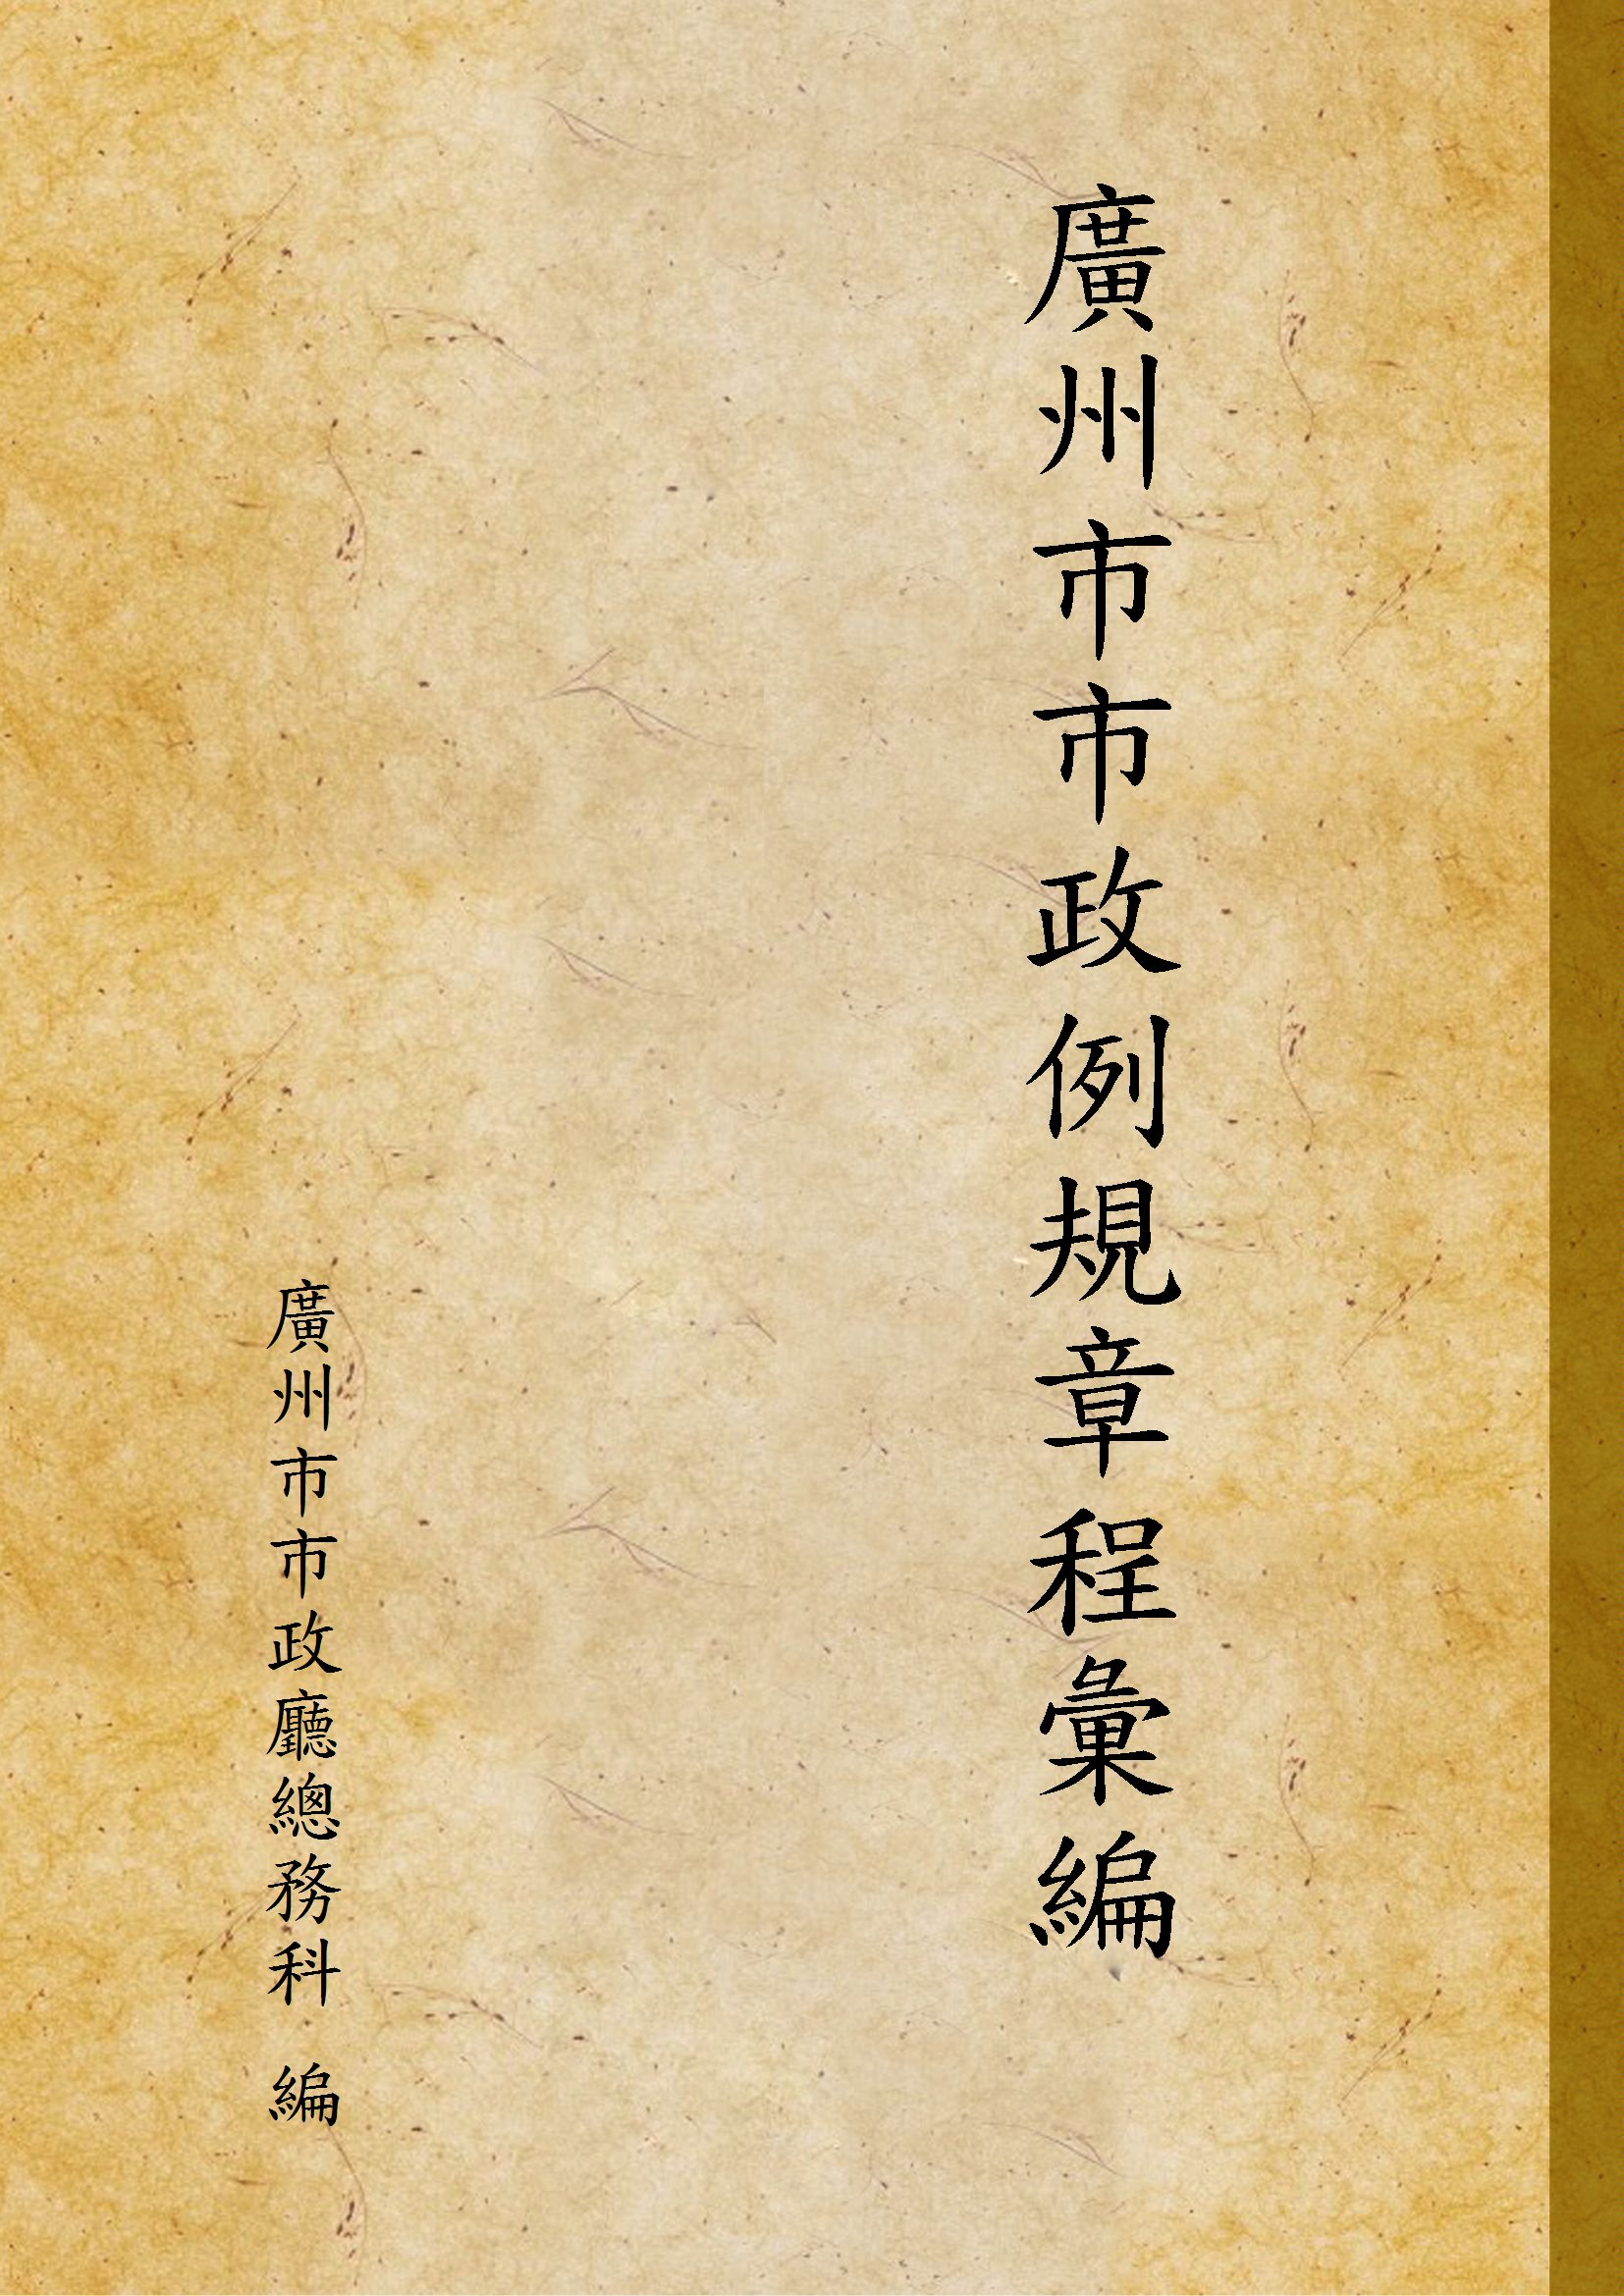 廣州市市政例規章程彙編
廣州市市政廳總務科 編